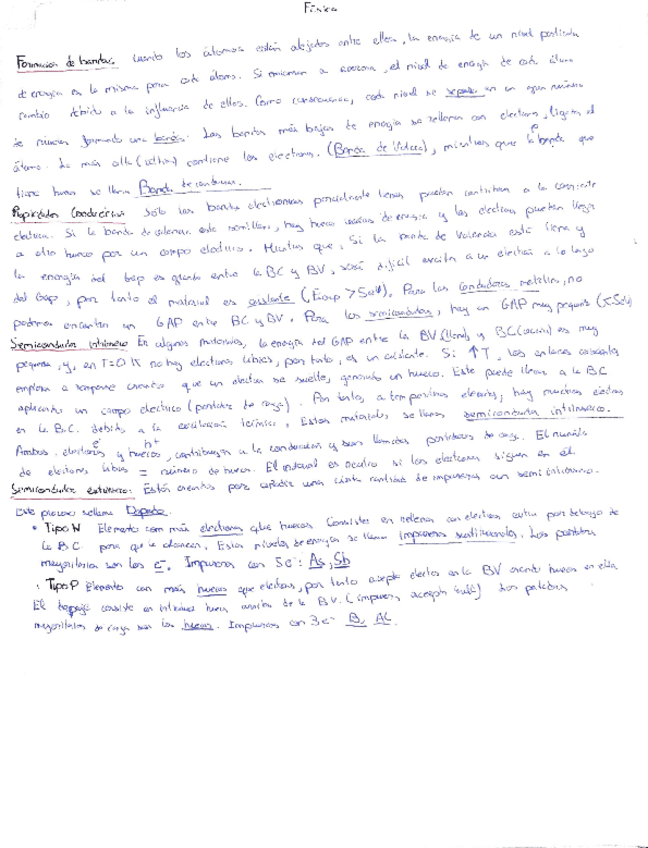 Física
Formación de bandas: cuando los átomos están alejados entre ellos, la energía de un nivel particular
de energía es la misma para cada átomo. Si empiezan a acercarse, el nivel de energía de cada átomo
cambia debido a la influencia de ellos. Como consecuencia, cada nivel se separa en un gran número
de niveles formando una banda. Las bandas más bajas de energía se rellenan con electrones ligados al
átomo. La más alta (última) contiene los electrones. (Banda de Valencia), mientras que la banda que
tiene huecos se llama Banda de conducción.
Propiedades Conductoras: Sólo las bandas electrónicas parcialmente llenas pueden contribuir a la corriente
eléctrica. Si la banda de valencia está semillena, hay huecos vacíos de energía y los electrones pueden llegar
a otro hueco por un campo eléctrico. Mientras que, si la banda de valencia está llena y
la energía del gap es grande entre la BC y BV, será difícil excitar a un electrón a lo largo
del Gap, por tanto el material es aislante (Egap > 5eV). Para los conductores metálicos, no
podemos encontrar un GAP entre BC y BV. Para los semiconductores, hay un GAP muy pequeño (<5eV)
Semiconductor intrínseco En algunos materiales, la energía del GAP entre la BV (llena) y BC (vacía) es muy
pequeña, y, en T=0 K no hay electrones libres, por tanto, es un aislante. Si ↑T, los enlaces covalentes
empiezan a romperse que un electrón se suelte, generando un hueco. Este puede llevar a la BC
aplicando un campo eléctrico (portador de carga). Por tanto, a temperaturas elevadas, hay muchos electrones
en la B.C. debido a la excitación térmica. Estos materiales se llaman semiconductor intrínseco.
Ambos, electrones e⁻ y huecos h⁺, contribuyen a la conducción y son llamados portadores de carga. El número
de electrones libres = número de huecos. El material es neutro si los electrones siguen en él.
Semiconductor extrínseco: Están creados por añadir una cierta cantidad de impurezas a un semi intrínseco.
Este proceso se llama Dopado.
• Tipo N Elemento con más electrones que huecos. Consiste en rellenar con electrones extra por debajo de
la BC para que la alcancen. Estos niveles de energía se llaman impurezas sustitucionales. Los portadores
mayoritarios son los e⁻. Impurezas con 5e⁻: As, Sb
• Tipo P Elemento con más huecos que electrones, por tanto acepta electrones en la BV creando huecos en ella.
El dopaje consiste en introducir huecos de la BV. (impureza aceptor) Los portadores
mayoritarios de carga son los huecos. Impurezas con 3e⁻ B, Al.